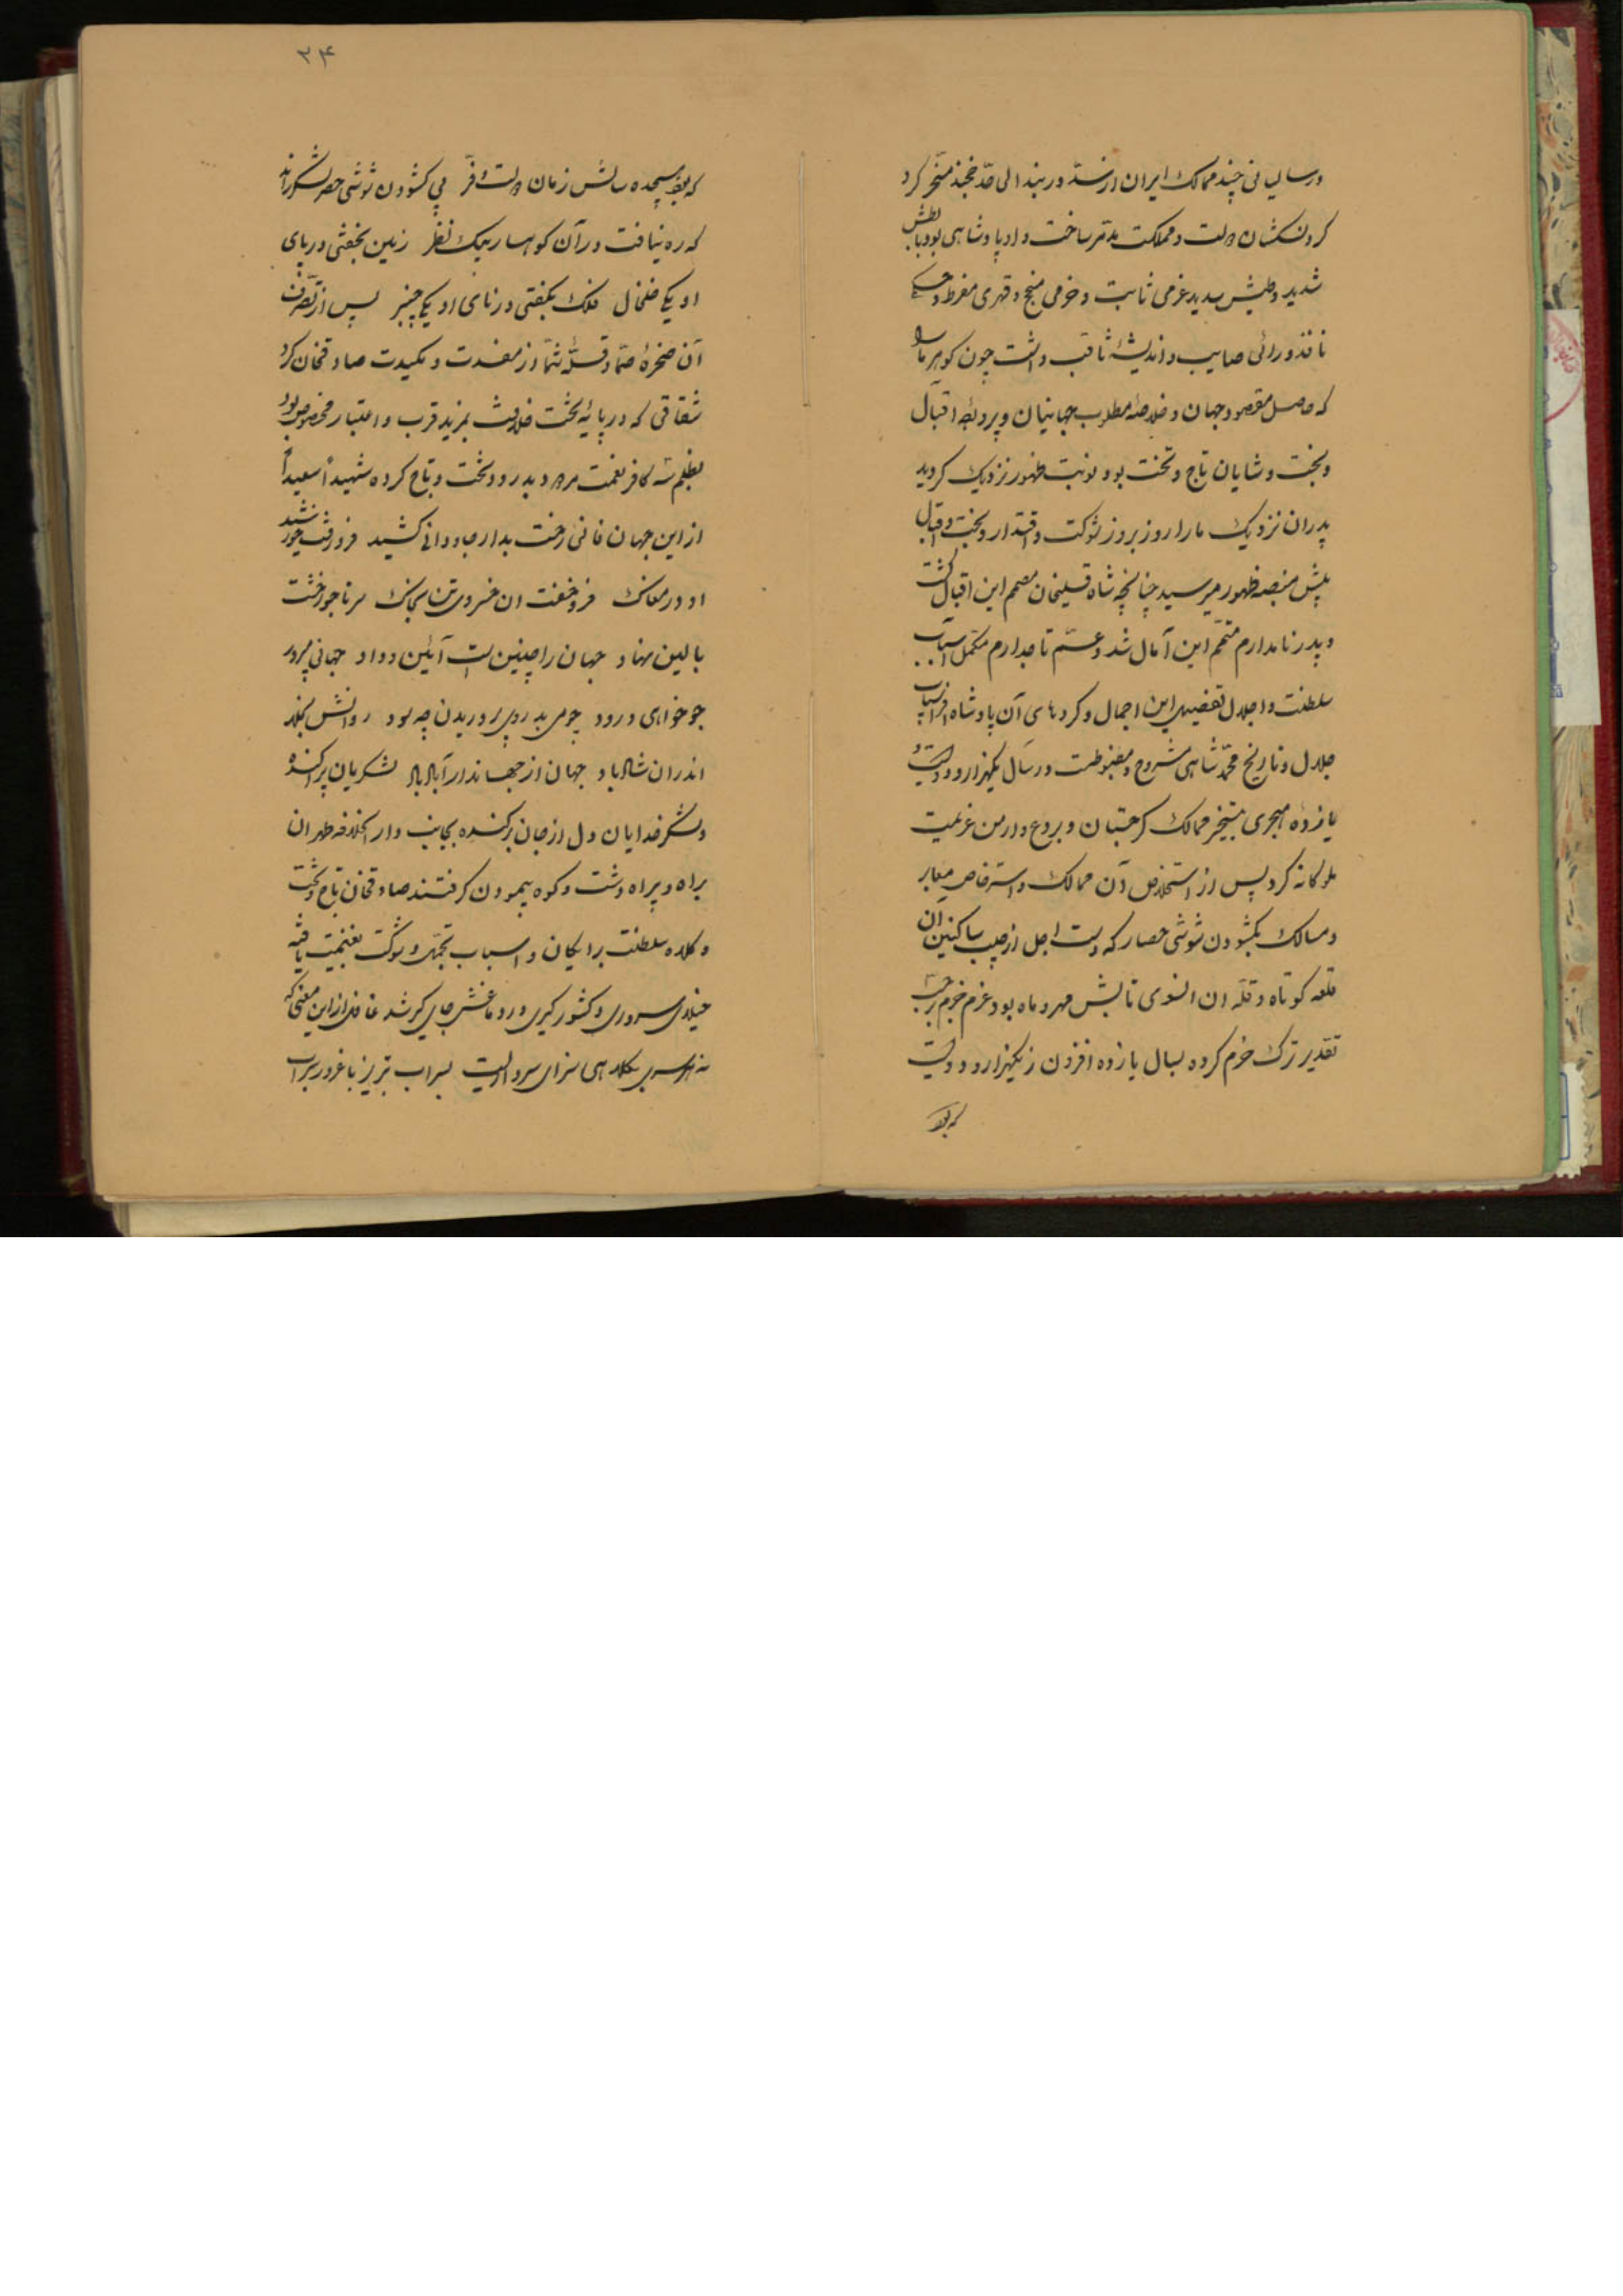 در سالیانی چند ممالک ایران از سد دربند الی حد خجند مسخر کرد
کردنکشان دولت و مملکت مدمر ساخت و او پادشاهی بود با بطش
شدید و طیش سدید عزمی ثابت و حزمی منتج و قهری مفرط و حکمی
نافذ و رائی صایب و اندیشهٔ ثاقب داشت چون کوهر ما را
که حاصل مقصود جهان و خلاصهٔ مطلوب جهانیان و پرده اقبال
و بخت و شایان تاج و تخت بود نوبت ظهور نزدیک کردید
پدران نزدیک ما را روز بروز شوکت و اقتدار و بخت و اقبال
پیش منصه ظهور میرسید چنانچه شاه قلیخان مصمم این اقبال گشت
و پدر نامدارم متمم این آمال شد و عم تاجدارم مکمل اسباب
سلطنت و اجلال تفصیل این اجمال و کردهای آن پادشاه افراسیاب
جلال در تاریخ محمد شاهی مشروح و مضبوطست در سال یکهزار و دویست و
یازده هجری بتسخیر ممالک کرجستان و بردع و ارمن عزیمت
ملوکانه کرد پس از استخلاص آن ممالک و استرفاص معابر
و مسالک بکشودن شوشی حصار که دست اجل از جیب ساکنین آن
قلعه کوتاه و قلّه ان انسوی تابش مهر و ماه بود عزم جزم
تقدیر ترک حزم کرده بسال یازده افزون ز یکهزار و دویست
که بود
۳۴
که بود پنجده سالش زمان دولت و فر پی کشودن شوشی حصر لشکر راند
که ره نیافت در آن کوهسار پیک نظر زمین بخفتی در پای
او یکی خلخال فلک بکفتی در نای او یکی چنبر پس از تصرف
آن صخرهٔ صما و قلّهٔ شما از مفسدت و مکیدت صادقخان کرد
شقاقی که در پایهٔ تخت خلافت بمزید قرب و اعتبار مخصوص بود
بظلم سه کافر نعمت مردود بدرود تخت و تاج کرده شهیداً سعیداً
از این جهان فانی رخت بدار جاودانی کشید فرو رفت خورشید
او در مغاک فرو خفت ان خسروی تن بخاک سر تاجور خشت
بالین نهاد جهان را چنین است آئین و داد جهانی مپرور
چو خواهی درود چو می بدروی پروریدن چه سود روانش بخلد
اندران شاد باد جهان از جهاندار آباد باد لشکریان پراکنده
و لشکر خدایان دل از جان برکنده بجانب دار الخلافه طهران
براه و بیراه دشت و کوه پیمودن کرفتند صادقخان تاج و تخت
و کلاه سلطنت برایکان و اسباب تجمل و شوکت بغنیمت یافته
خیال سروری و کشور کیری در دماغش جای کیر شد غافل از این معنی که
نه هر سری بکلاهی سزای سرداریست بسراب تبریز با غرور سراب